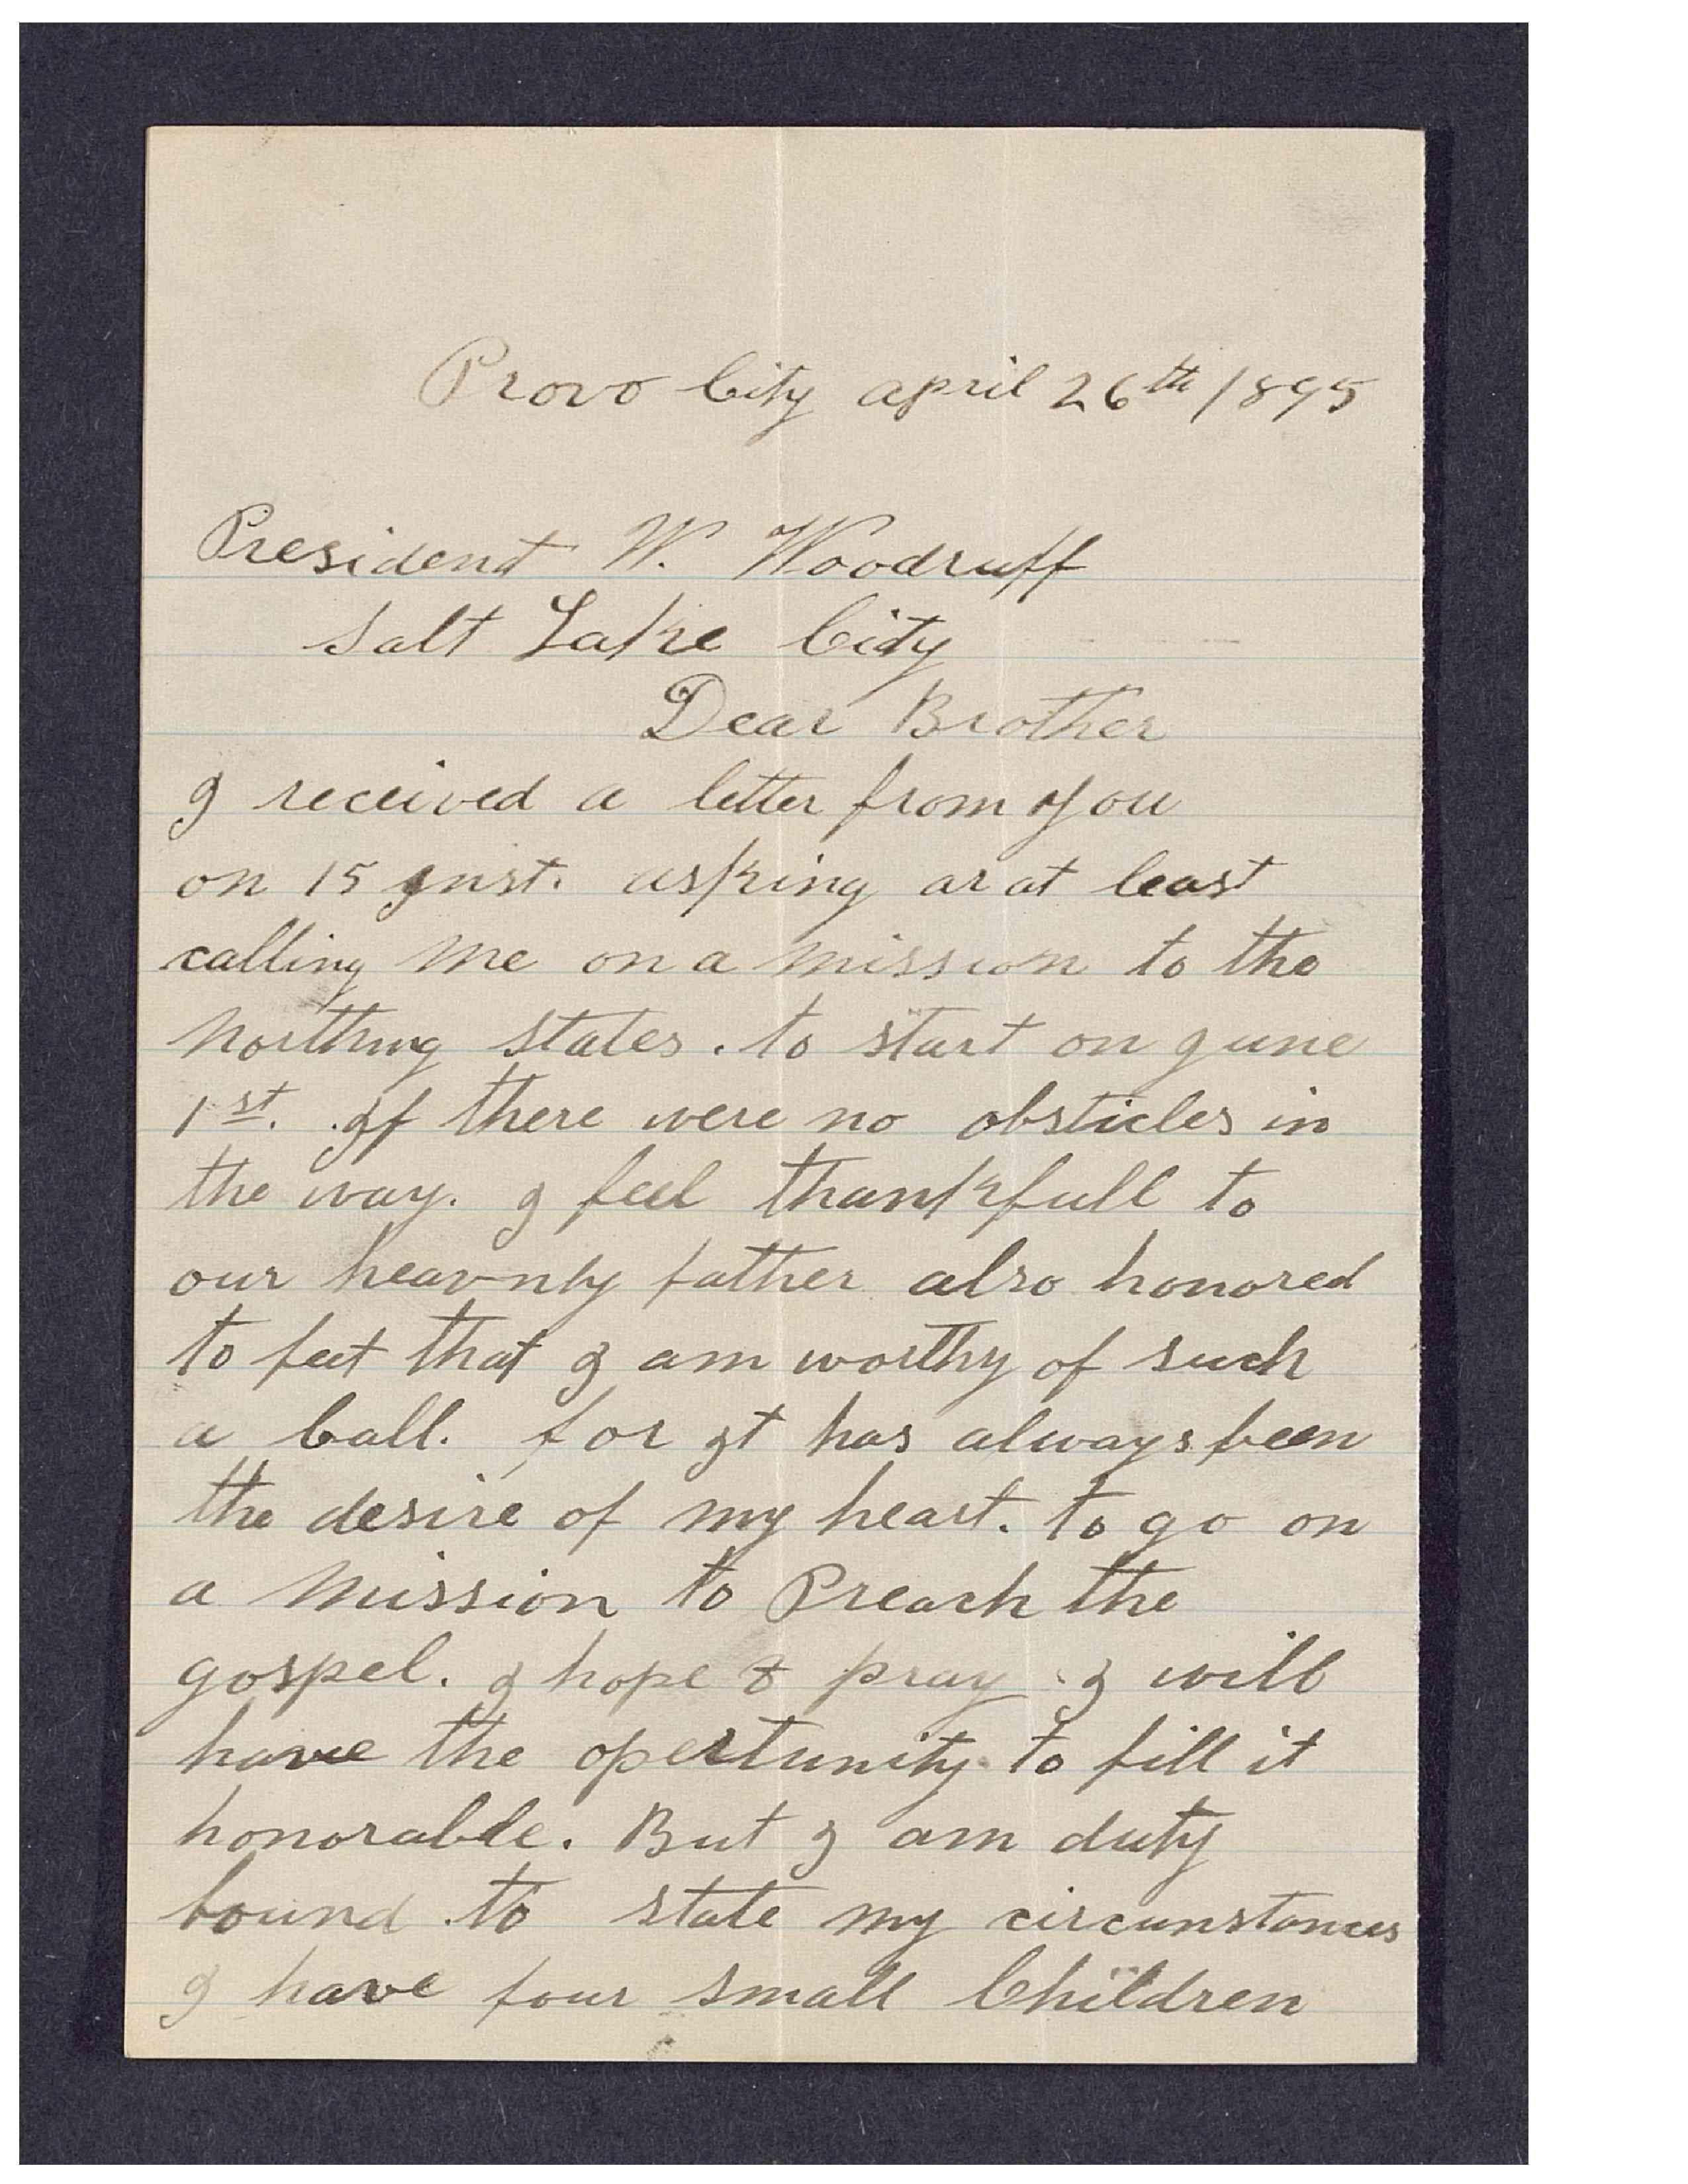 Provo City april 26th 1895
President W. Woodruff
Salt Lake City
Dear Brother
I received a letter from you
on 15 Inst. asking or at least
calling me on a mission to the
Northing States. to start on June
1st. If there were no obsticles in
the way. I feel thankfull to
our heavnly father also honored
to feel that I am worthy of such
a Call. for It has always been
the desire of my heart. to go on
a Mission to Preach the
gospel. I hope & pray I will
have the opertunity to fill it
honorable. But I am duty
bound to state my circumstances
I have four small Children